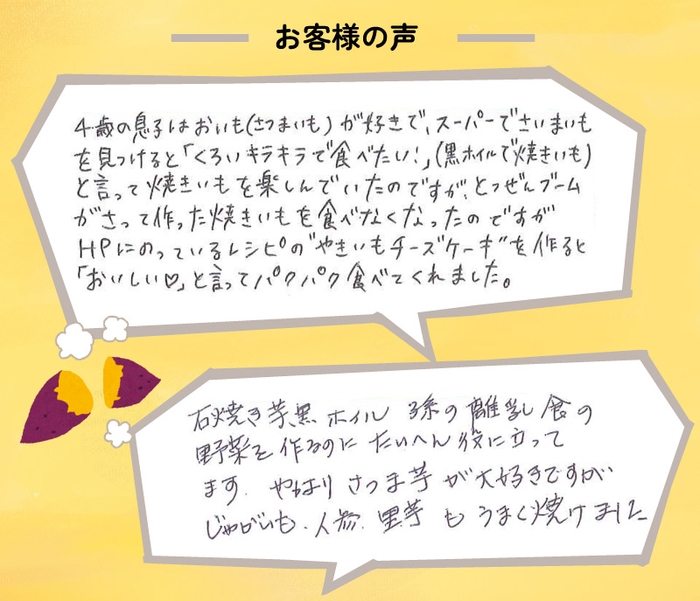 お客様の声
4歳の息子はおいも(さつまいも)が好きで、スーパーでさいまいも
を見つけると「くろいキラキラで食べたい!」(黒ホイルで焼きいも)
と言って焼きいもを楽しんでいたのですが、とつぜんブーム
がさって作った焼きいもを食べなくなったのですが
HPにのっているレシピの"やきいもチーズケーキ"を作ると
「おいしい♡」と言ってパクパク食べてくれました。
石焼き芋黒ホイル 孫の離乳食の
野菜を作るのにたいへん役に立って
ます. やはりさつま芋が大好きですが
じゃがいも.人参.里芋もうまく焼けました